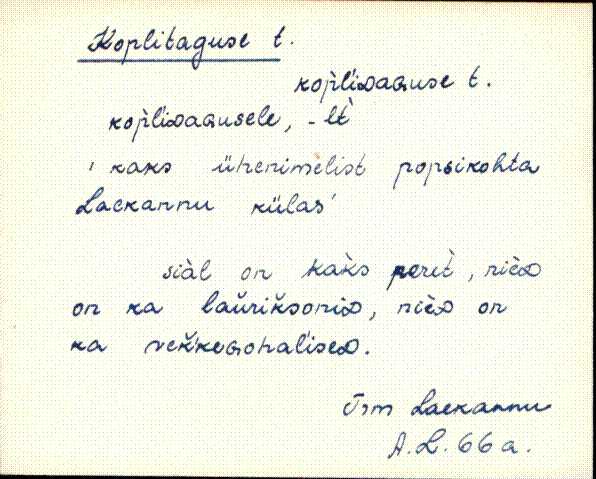 Koplitaguse t.
kop̀liᴅaɢuse t.
kop̀liᴅaɢusele, -lt̀
' kaks ühenimelist popsikohta
Laekannu külas'
siàl on kak̀s peret̀, nièᴅ
on ka lau̯rik̆soniᴅ, nièᴅ on
ka vek̆keɢohaliseᴅ.
Trm Laekannu
A.L. 66 a.